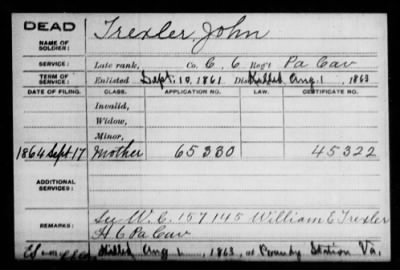 DEAD
NAME OF SOLDIER: Trexler, John
SERVICE: Late rank, Co. C, 6 Reg't Pa Cav
TERM OF SERVICE: Enlisted Sept. 10, 1861, Dis Killed Aug. 1, 1863
DATE OF FILING. CLASS. APPLICATION NO. LAW. CERTIFICATE NO.
Invalid,
Widow,
Minor,
1864 Sept 17 Mother 65330 45322
ADDITIONAL SERVICES:
REMARKS: See W. C. 157145 William E Trexler
H 6 Pa Cav
Killed Aug 1, 1863, at Brandy Station Va.